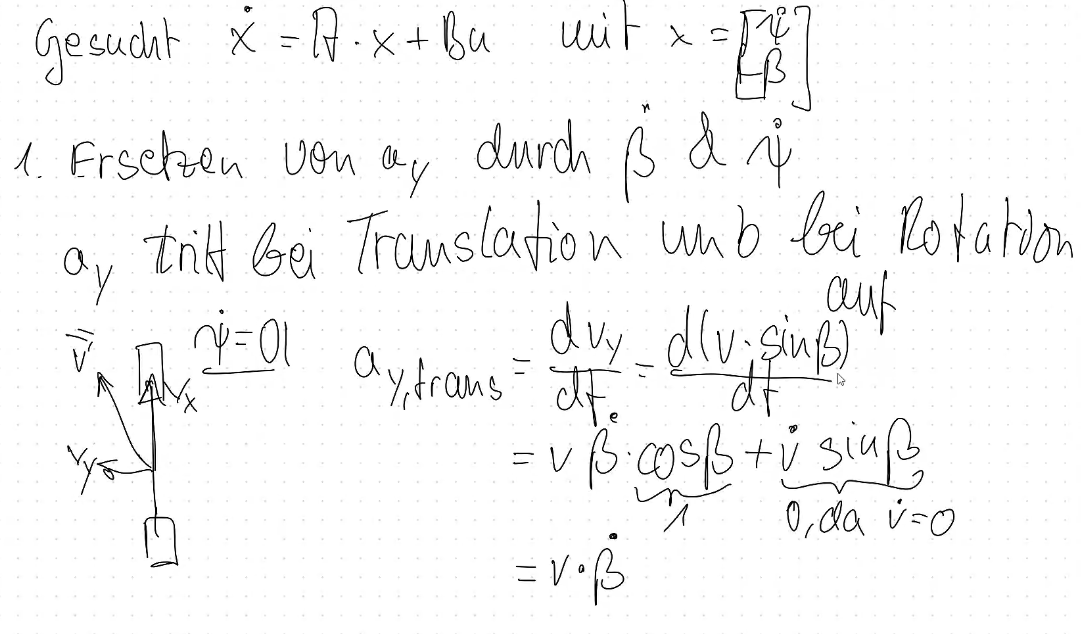 Gesucht ẋ = A · x + Bu mit x = [ψ̇ -β]
1. Ersetzen von a_y durch β̇ & ψ̇
a_y tritt bei Translation und bei Rotation
auf
ψ̇ = 0!
v⃗
v_x
v_y
a_y,trans = dv_y/dt = d(v · sinβ)/dt
= v β̇ · cosβ + v̇ sinβ
1 0, da v̇ = 0
= v · β̇